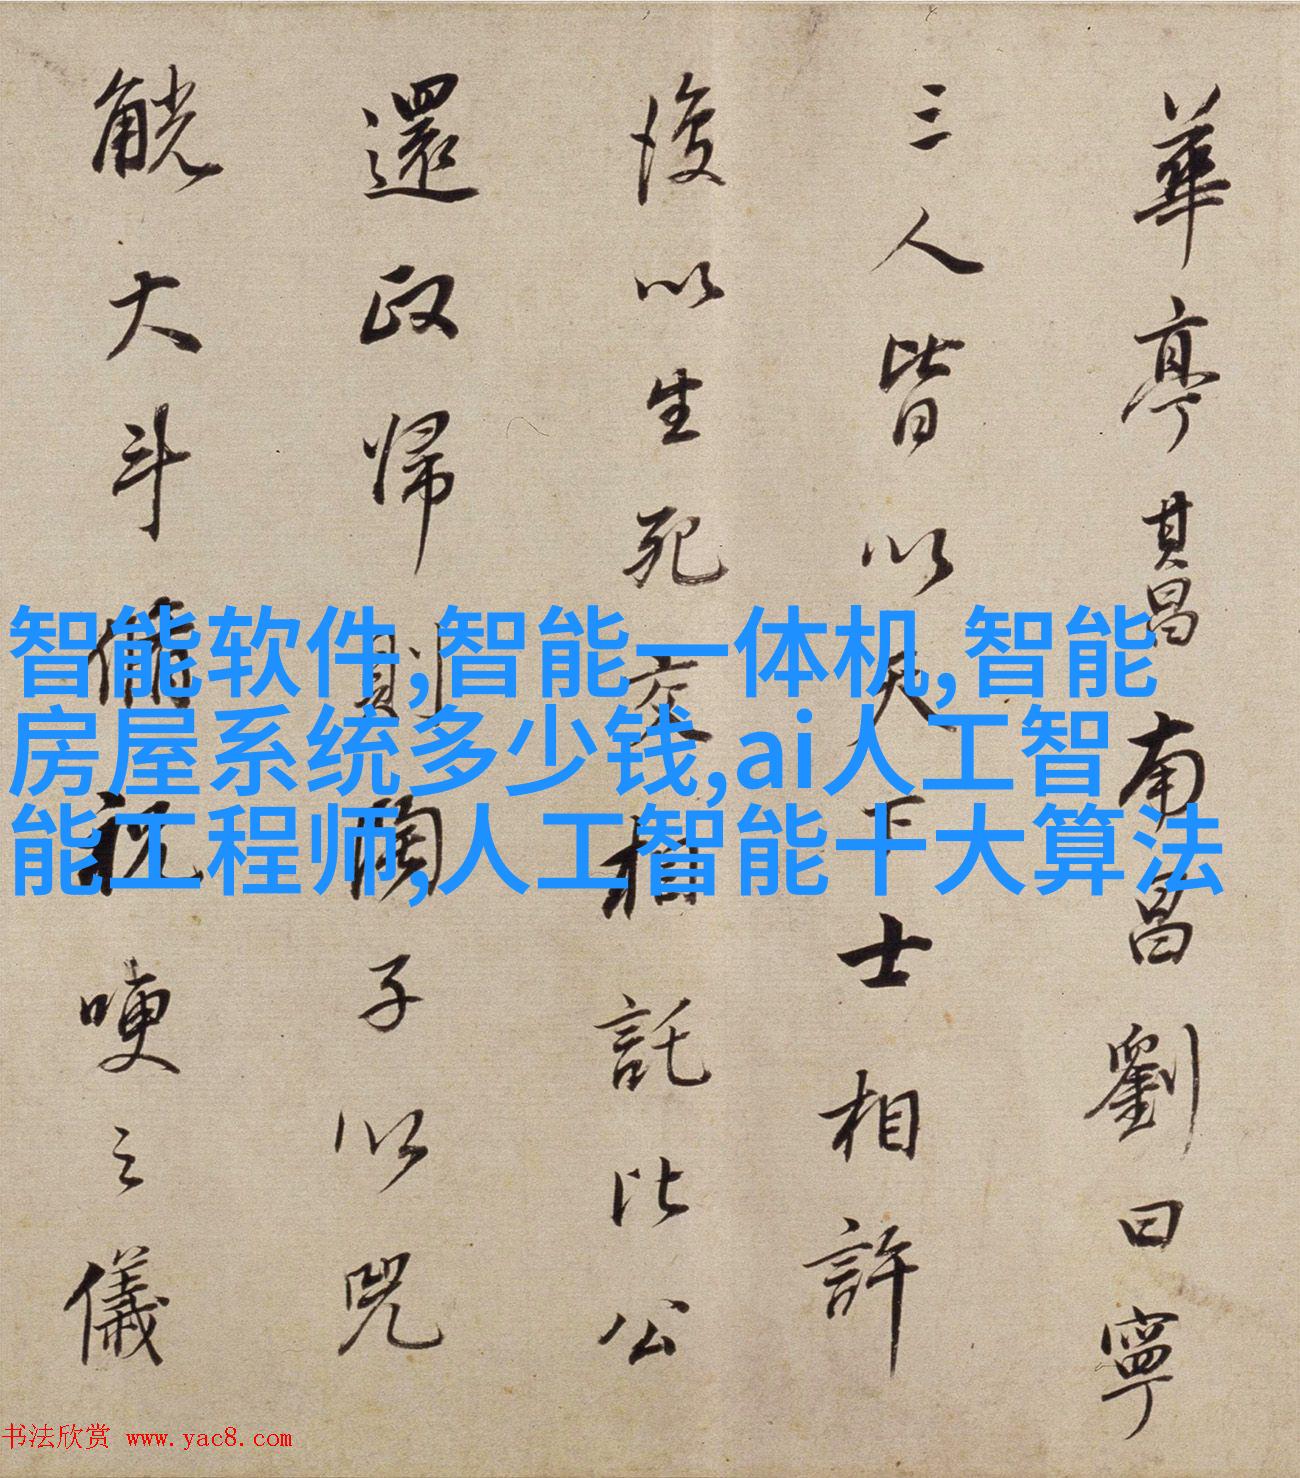 華亭其昌南昌劉曰寧
三人皆以天下士相許
後以生死交相託比公
還政帰則陶子以兕
觥大斗脩祝哽之儀
智能软件,智能一体机,智能
房屋系统多少钱,ai人工智
能工程师,人工智能十大算法
书法欣赏 www.yac8.com